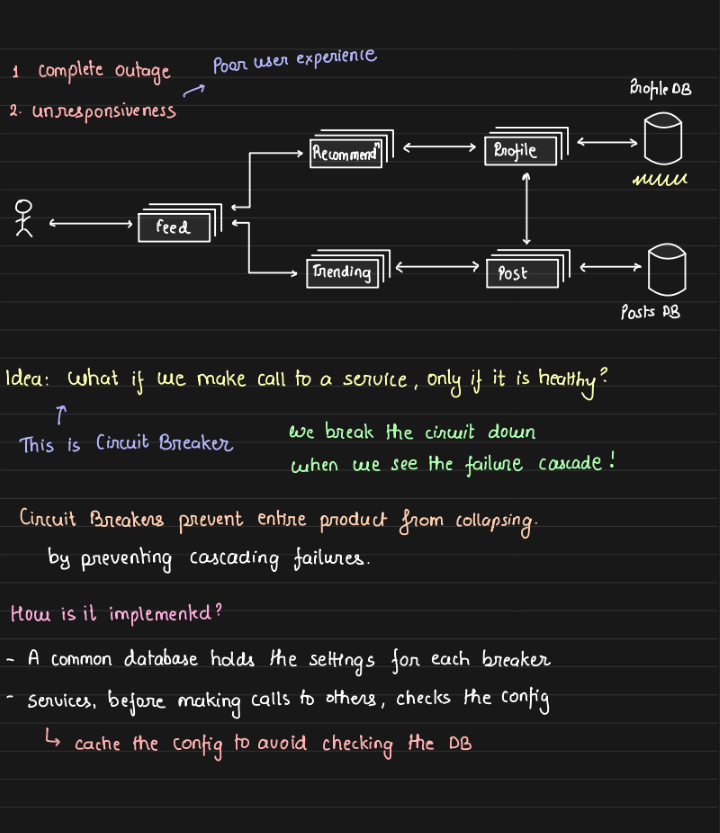 1 complete outage
Poor user experience
2. unresponsiveness
Profile DB
Recommendⁿ
Profile
Feed
Trending
Post
Posts DB
Idea: What if we make call to a service, only if it is healthy?
This is Circuit Breaker
we break the circuit down
when we see the failure cascade!
Circuit Breakers prevent entire product from collapsing.
by preventing cascading failures.
How is it implemented?
- A common database holds the settings for each breaker
- services, before making calls to others, checks the config
cache the config to avoid checking the DB